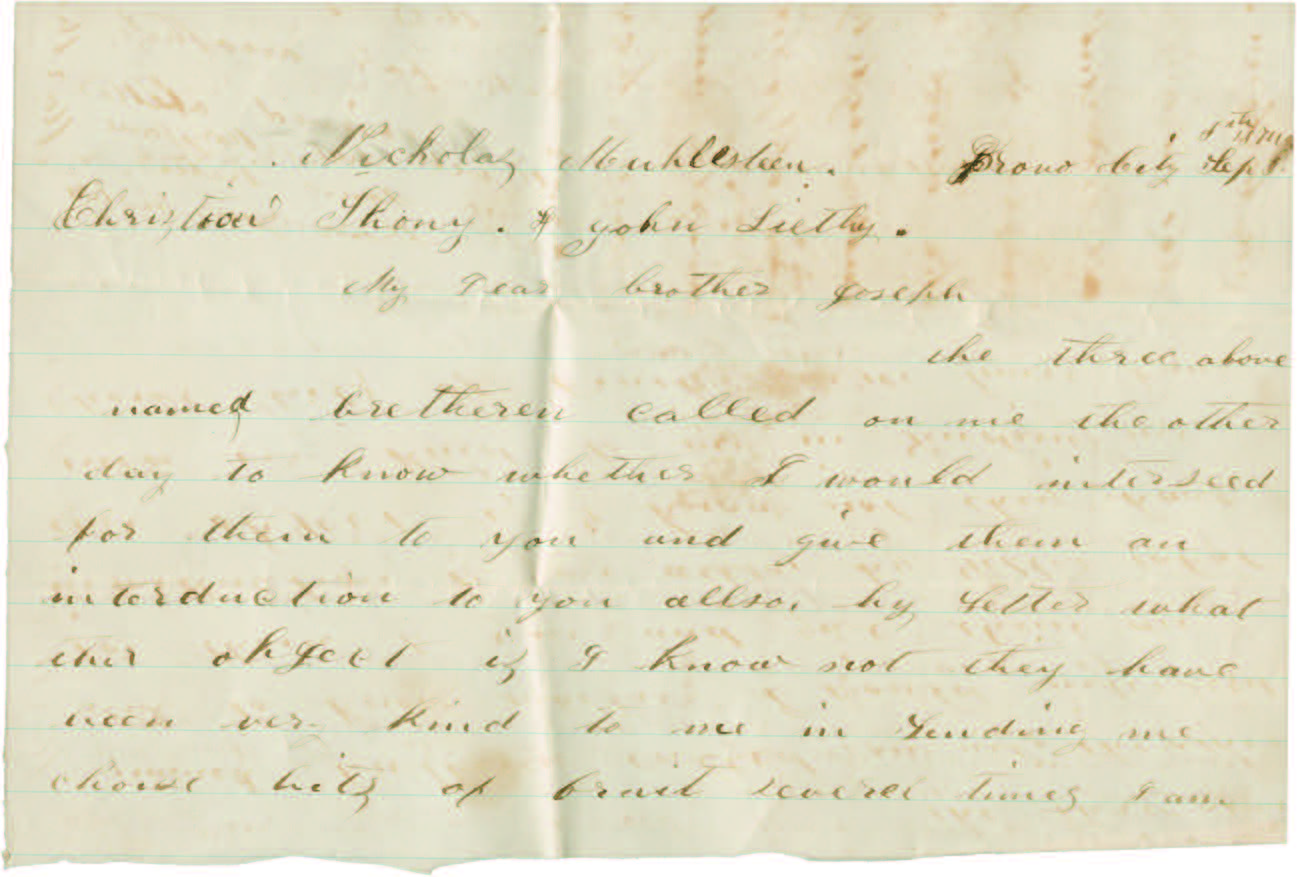 Nicholas Muhlestein. Provo City Sep 5th
Christian Thony. & John Liethy.
My Dear brother Joseph
the three above
named bretheren called on me the other
day to know whether I would interseed
for them to you and give them an
interduction to you allso, by Letter what
ther object is I know not they have
been ver kind to me in Sending me
choise bits of fruit severel times I am